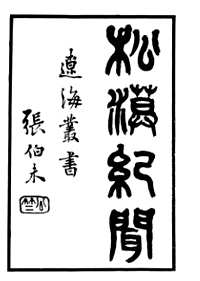 松漠紀聞
遼海叢書
張伯未